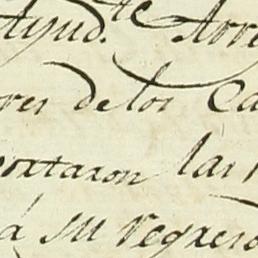 Ayud.te Arre
res de los Ca
ortaron las
á su regreso